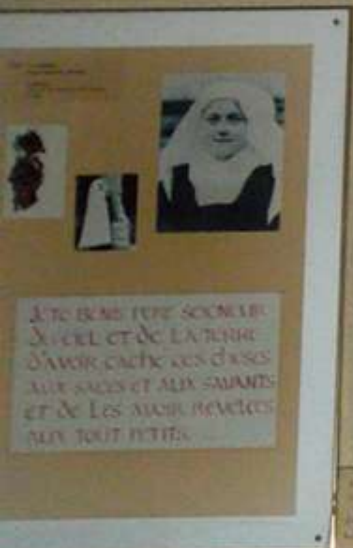 JE TE BENIS PERE SEIGNEUR
DU CIEL ET DE LA TERRE
D'AVOIR CACHE CES CHOSES
AUX SAGES ET AUX SAVANTS
ET DE LES AVOIR REVELEES
AUX TOUT PETITS....